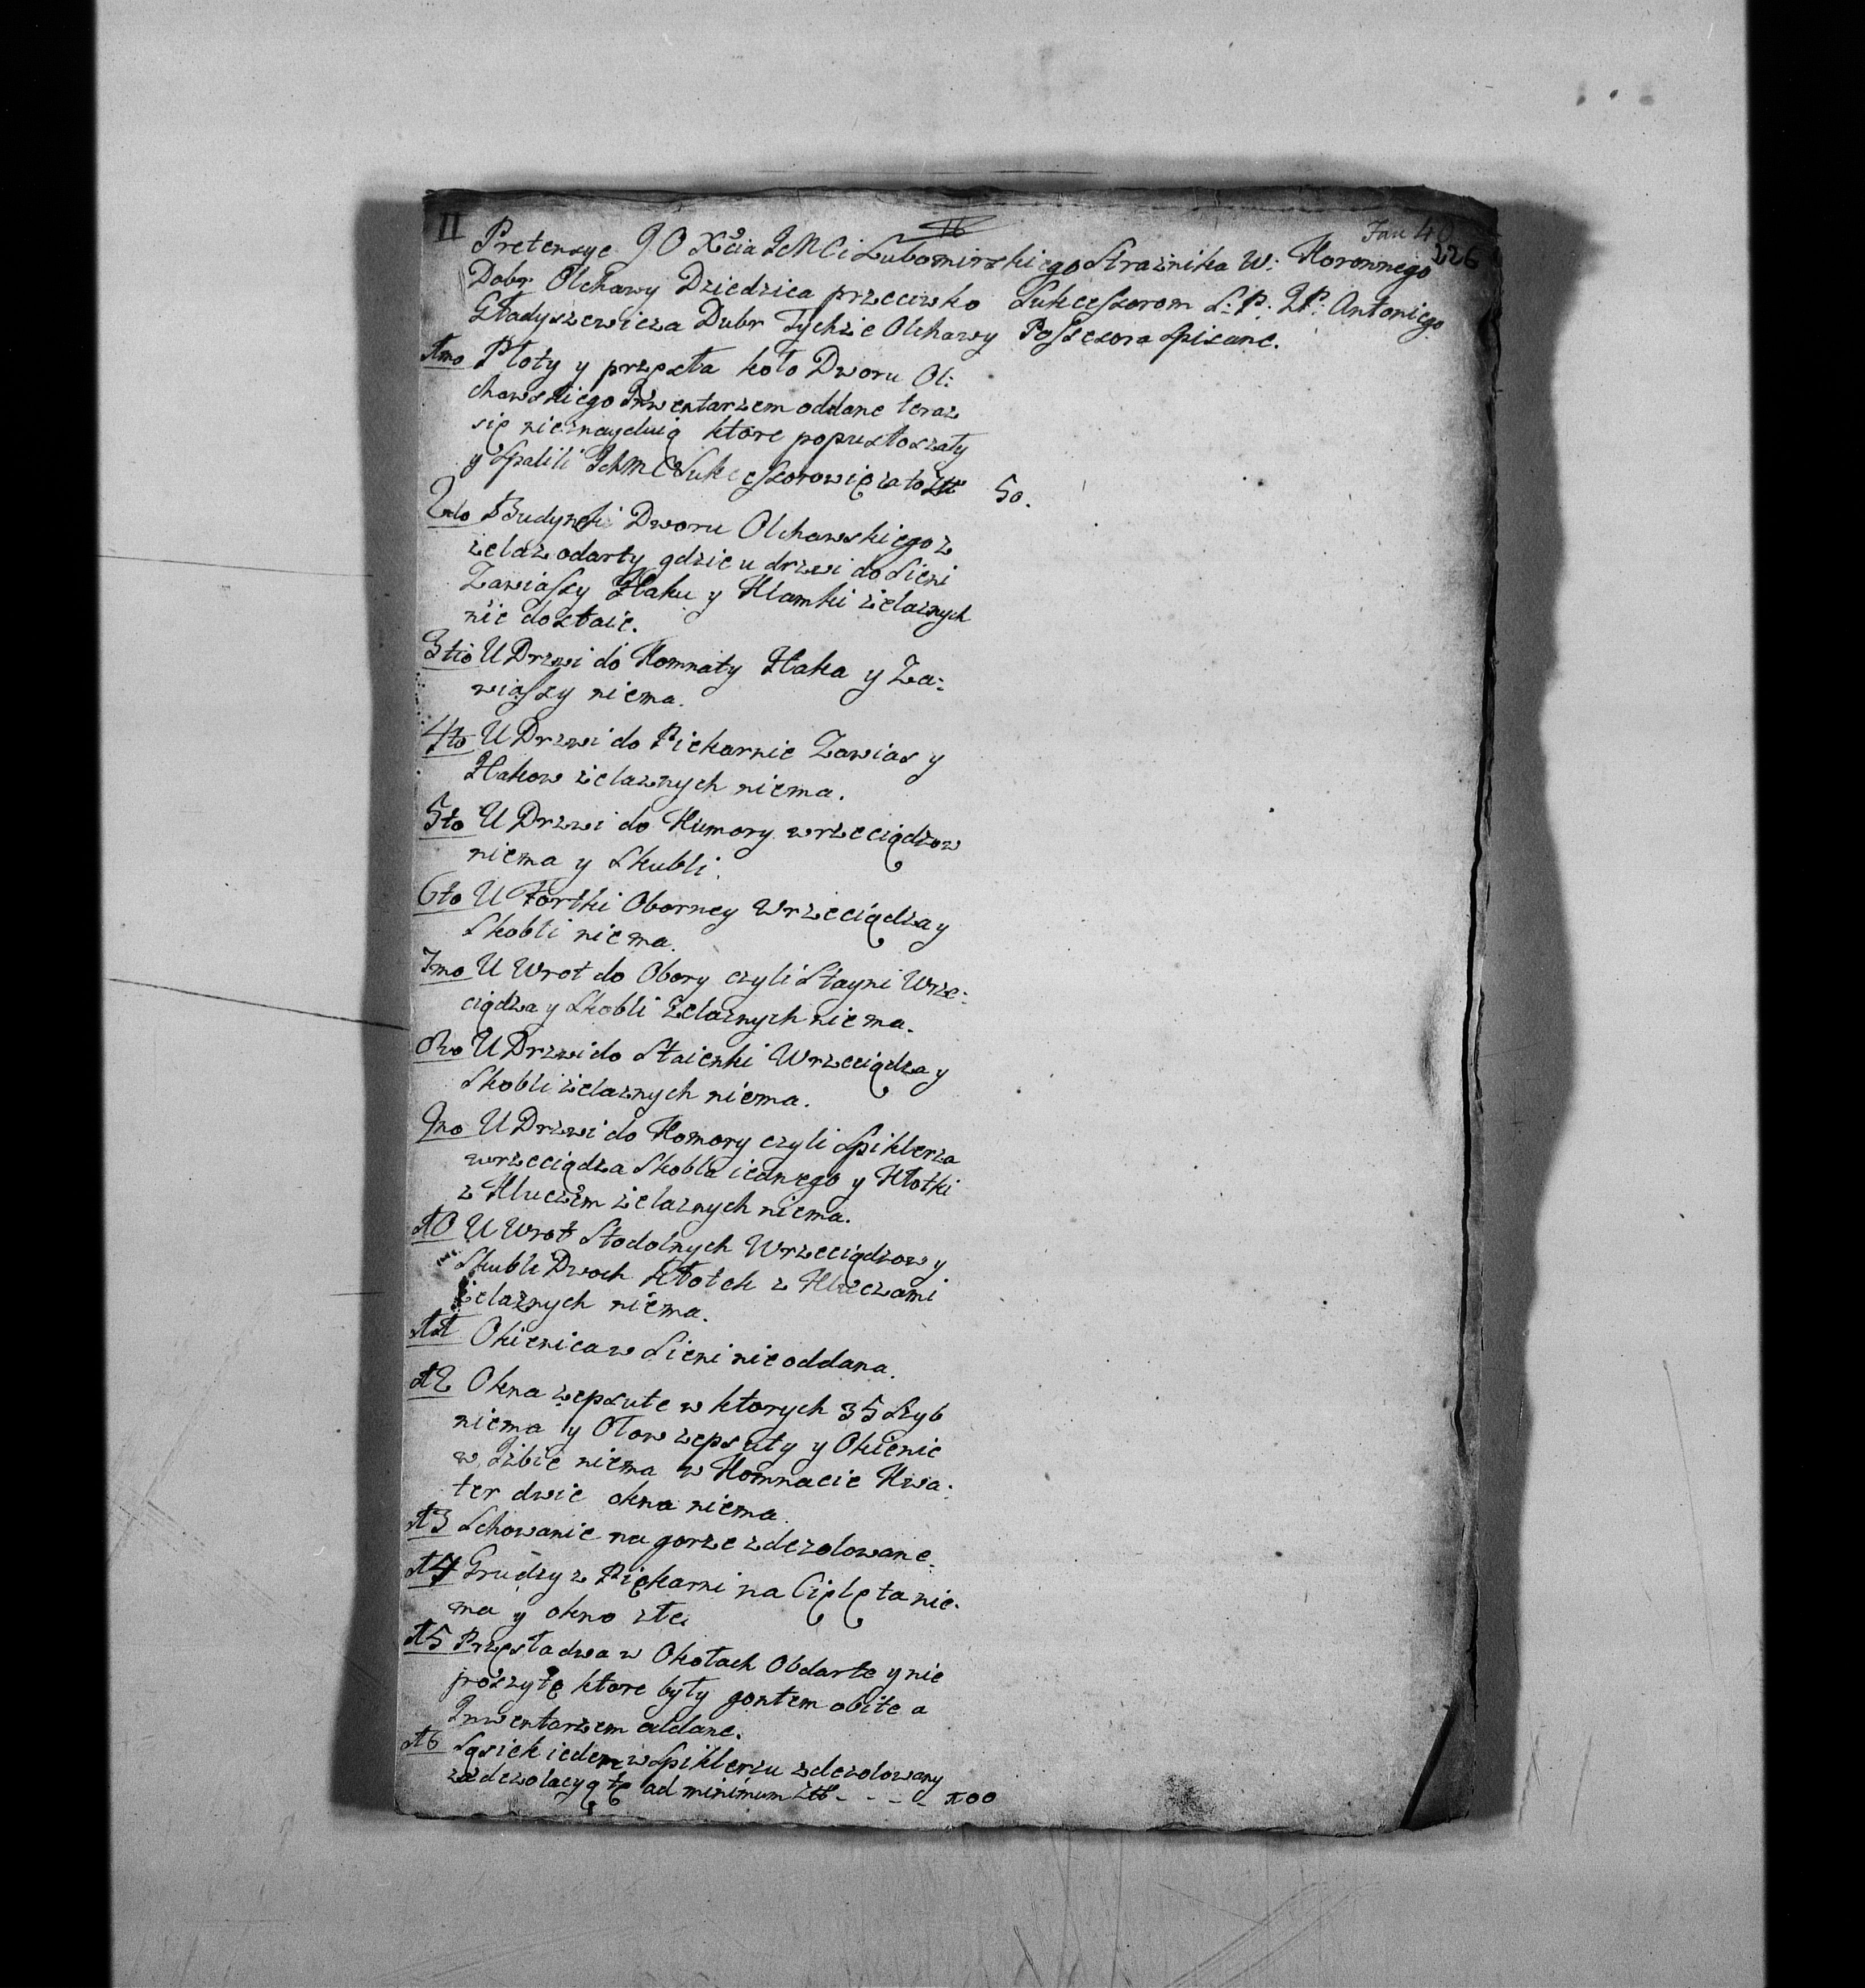 II
Jan 40
226
Pretensye J O Xcia JeMCi Lubomirskiego Strażnika W: Koronnego
Dobr Olchawy Dziedzica przeciwko Sukcessorom S: P: JP: Antoniego
Gładyszewicza Dobr Tychże Olchawy Possesora spisane.
1mo Płoty y przęsła koło Dworu Ol:
chawskiego Inwentarzem oddane teraz
się nieznayduią ktore popustoszały
y spalili IchMC Sukcessorowie za to Złł 50.
2do Budynek Dworu Olchawskiego z
żelaz odarty gdzie u drzwi do Sieni
Zawiassy Haku y Klamki żelaznych
nie dostaie.
3tio U Drzwi do Komnaty Haka y Za:
wiassy niema.
4to U Drzwi do Piekarnie Zawias y
Hakow żelaznych niema.
5to U Drzwi do Kumory wrzeciądzow
niema y Skubli.
6to U Fortki Oborney Wrzeciądza y
Skobli niema.
7mo U Wrot do Obory czyli Stayni Wrze:
ciądza y Skobli żelaznych niema.
8vo U Drzwi do Staienki Wrzeciądza y
Skobli żelaznych niema.
9no U Drzwi do Komory czyli Spiklerza
wrzeciądza Skobla iednego y Kłotki
z Kluczem żelaznych niema.
10 U Wrot Stodolnych Wrzeciądzow y
Skubli Dwoch Kłotek z Kluczami
żelaznych niema.
11 Okienica w Sieni nie oddana.
12 Okna zepsute w ktorych 35 Szyb
niema y Ołow zepsuty y Okienic
w Izbie niema w Komnacie Kwa:
ter dwie okna niema.
13 Schowanie na gorze zdezolowane.
14 Grudzy z Piekarni na Cielęta nie:
ma y okno złe
15 Przęsła dwa w Okołach Obdarte y nie
poszyte ktore były gontem obite a
Inwentarzem oddane.
16 Sąsiek ieden w Spiklerzu zdezolowany
za dezolacyą tę ad minimum Złł - - - - 100